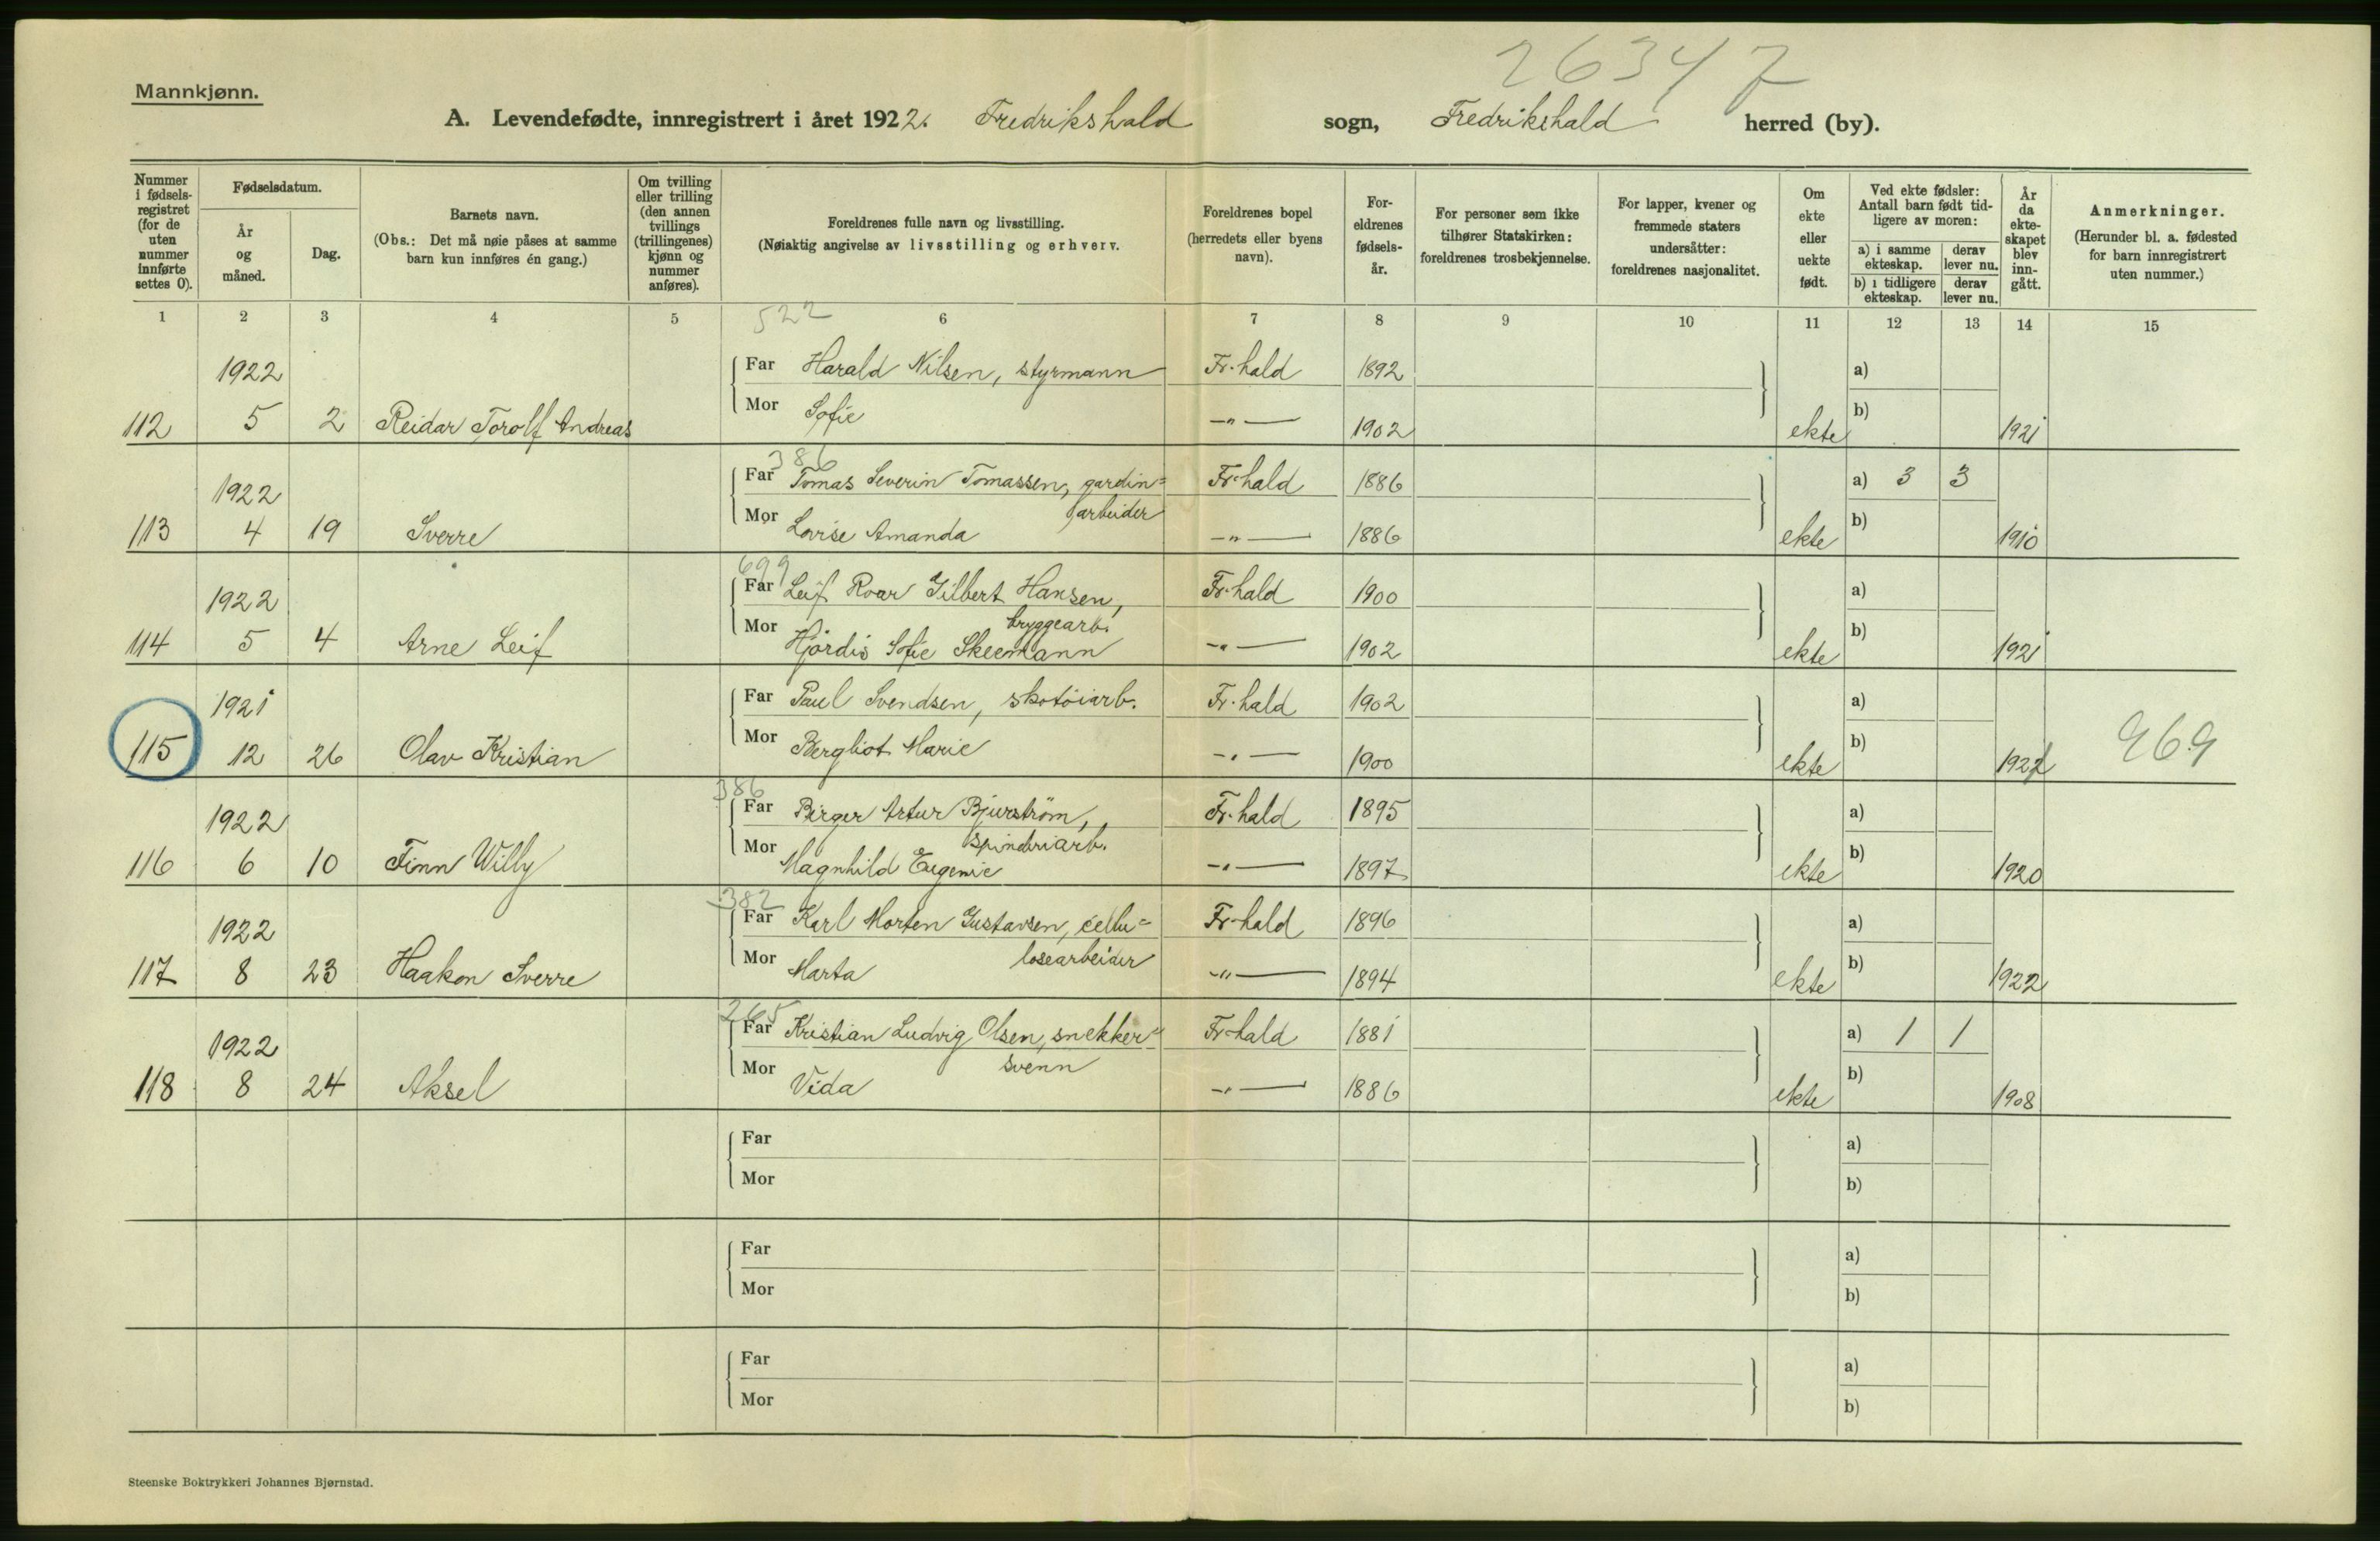 26347
Mannkjønn.
A. Levendefødte, innregistrert i året 1922. Fredrikshald sogn, Fredrikshald herred (by).
Nummer i fødsels-registret (for de uten nummer innførte settes 0).
Fødselsdatum.
År og måned.
Dag.
Barnets navn.
(Obs.: Det må nøie påses at samme barn kun innføres én gang.)
Om tvilling eller trilling (den annen tvillings (trillingenes) kjønn og nummer anføres).
Foreldrenes fulle navn og livsstilling.
(Nøiaktig angivelse av livsstilling og erhverv.
Foreldrenes bopel (herredets eller byens navn).
For-eldrenes fødsels-år.
For personer som ikke tilhører Statskirken: foreldrenes trosbekjennelse.
For lapper, kvener og fremmede staters undersåtter: foreldrenes nasjonalitet.
Om ekte eller uekte født.
Ved ekte fødsler: Antall barn født tid-ligere av moren:
a) i samme ekteskap.
derav lever nu.
b) i tidligere ekteskap.
derav lever nu.
År da ekte-skapet blev inn-gått.
Anmerkninger.
(Herunder bl. a. fødested for barn innregistrert uten nummer.)
1 2 3 4 5 6 7 8 9 10 11 12 13 14 15
522
1922 Far Harald Nilsen, styrmann Fr.hald 1892 a)
112 5 2 Reidar Torolf Andreas Mor Sofie -"- 1902 ekte b) 1921
386
1922 Far Tomas Severin Tomassen, gardin= Fr.hald 1886 a) 3 3
arbeider
113 4 19 Sverre Mor Lovise Amanda -"- 1886 ekte b) 1910
699
1922 Far Leif Roar Gilbert Hansen, Fr.hald 1900 a)
bryggearb.
114 5 4 Arne Leif Mor Hjørdis Sofie Skeemann -"- 1902 ekte b) 1921
1921 Far Paul Svendsen, skotöiarb. Fr.hald 1902 a)
115 12 26 Olav Kristian Mor Bergliot Marie -"- 1900 ekte b) 1921 969
386
1922 Far Birger Artur Bjurström, Fr.hald 1895 a)
spinderiarb.
116 6 10 Finn Willy Mor Magnhild Eugenie -"- 1897 ekte b) 1920
382
1922 Far Karl Morten Gustavsen, cellu= Fr.hald 1896 a)
losearbeider
117 8 23 Haakon Sverre Mor Marta -"- 1894 ekte b) 1922
265
1922 Far Kristian Ludvig Olsen, snekker= Fr.hald 1881 a) 1 1
svenn
118 8 24 Aksel Mor Vida -"- 1886 ekte b) 1908
Far a)
Mor b)
Far a)
Mor b)
Far a)
Mor b)
Steenske Boktrykkeri Johannes Bjørnstad.